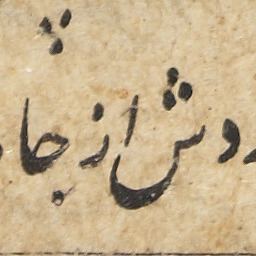 دوش از جا